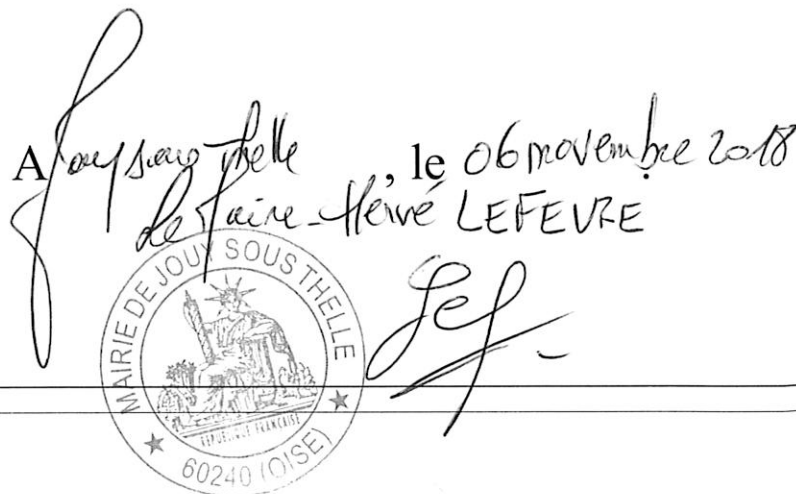 A Jouy sous Thelle, le 06 novembre 2018
Le Maire - Hervé LEFEVRE
MAIRIE DE JOUY SOUS THELLE
REPUBLIQUE FRANCAISE
60240 (OISE)